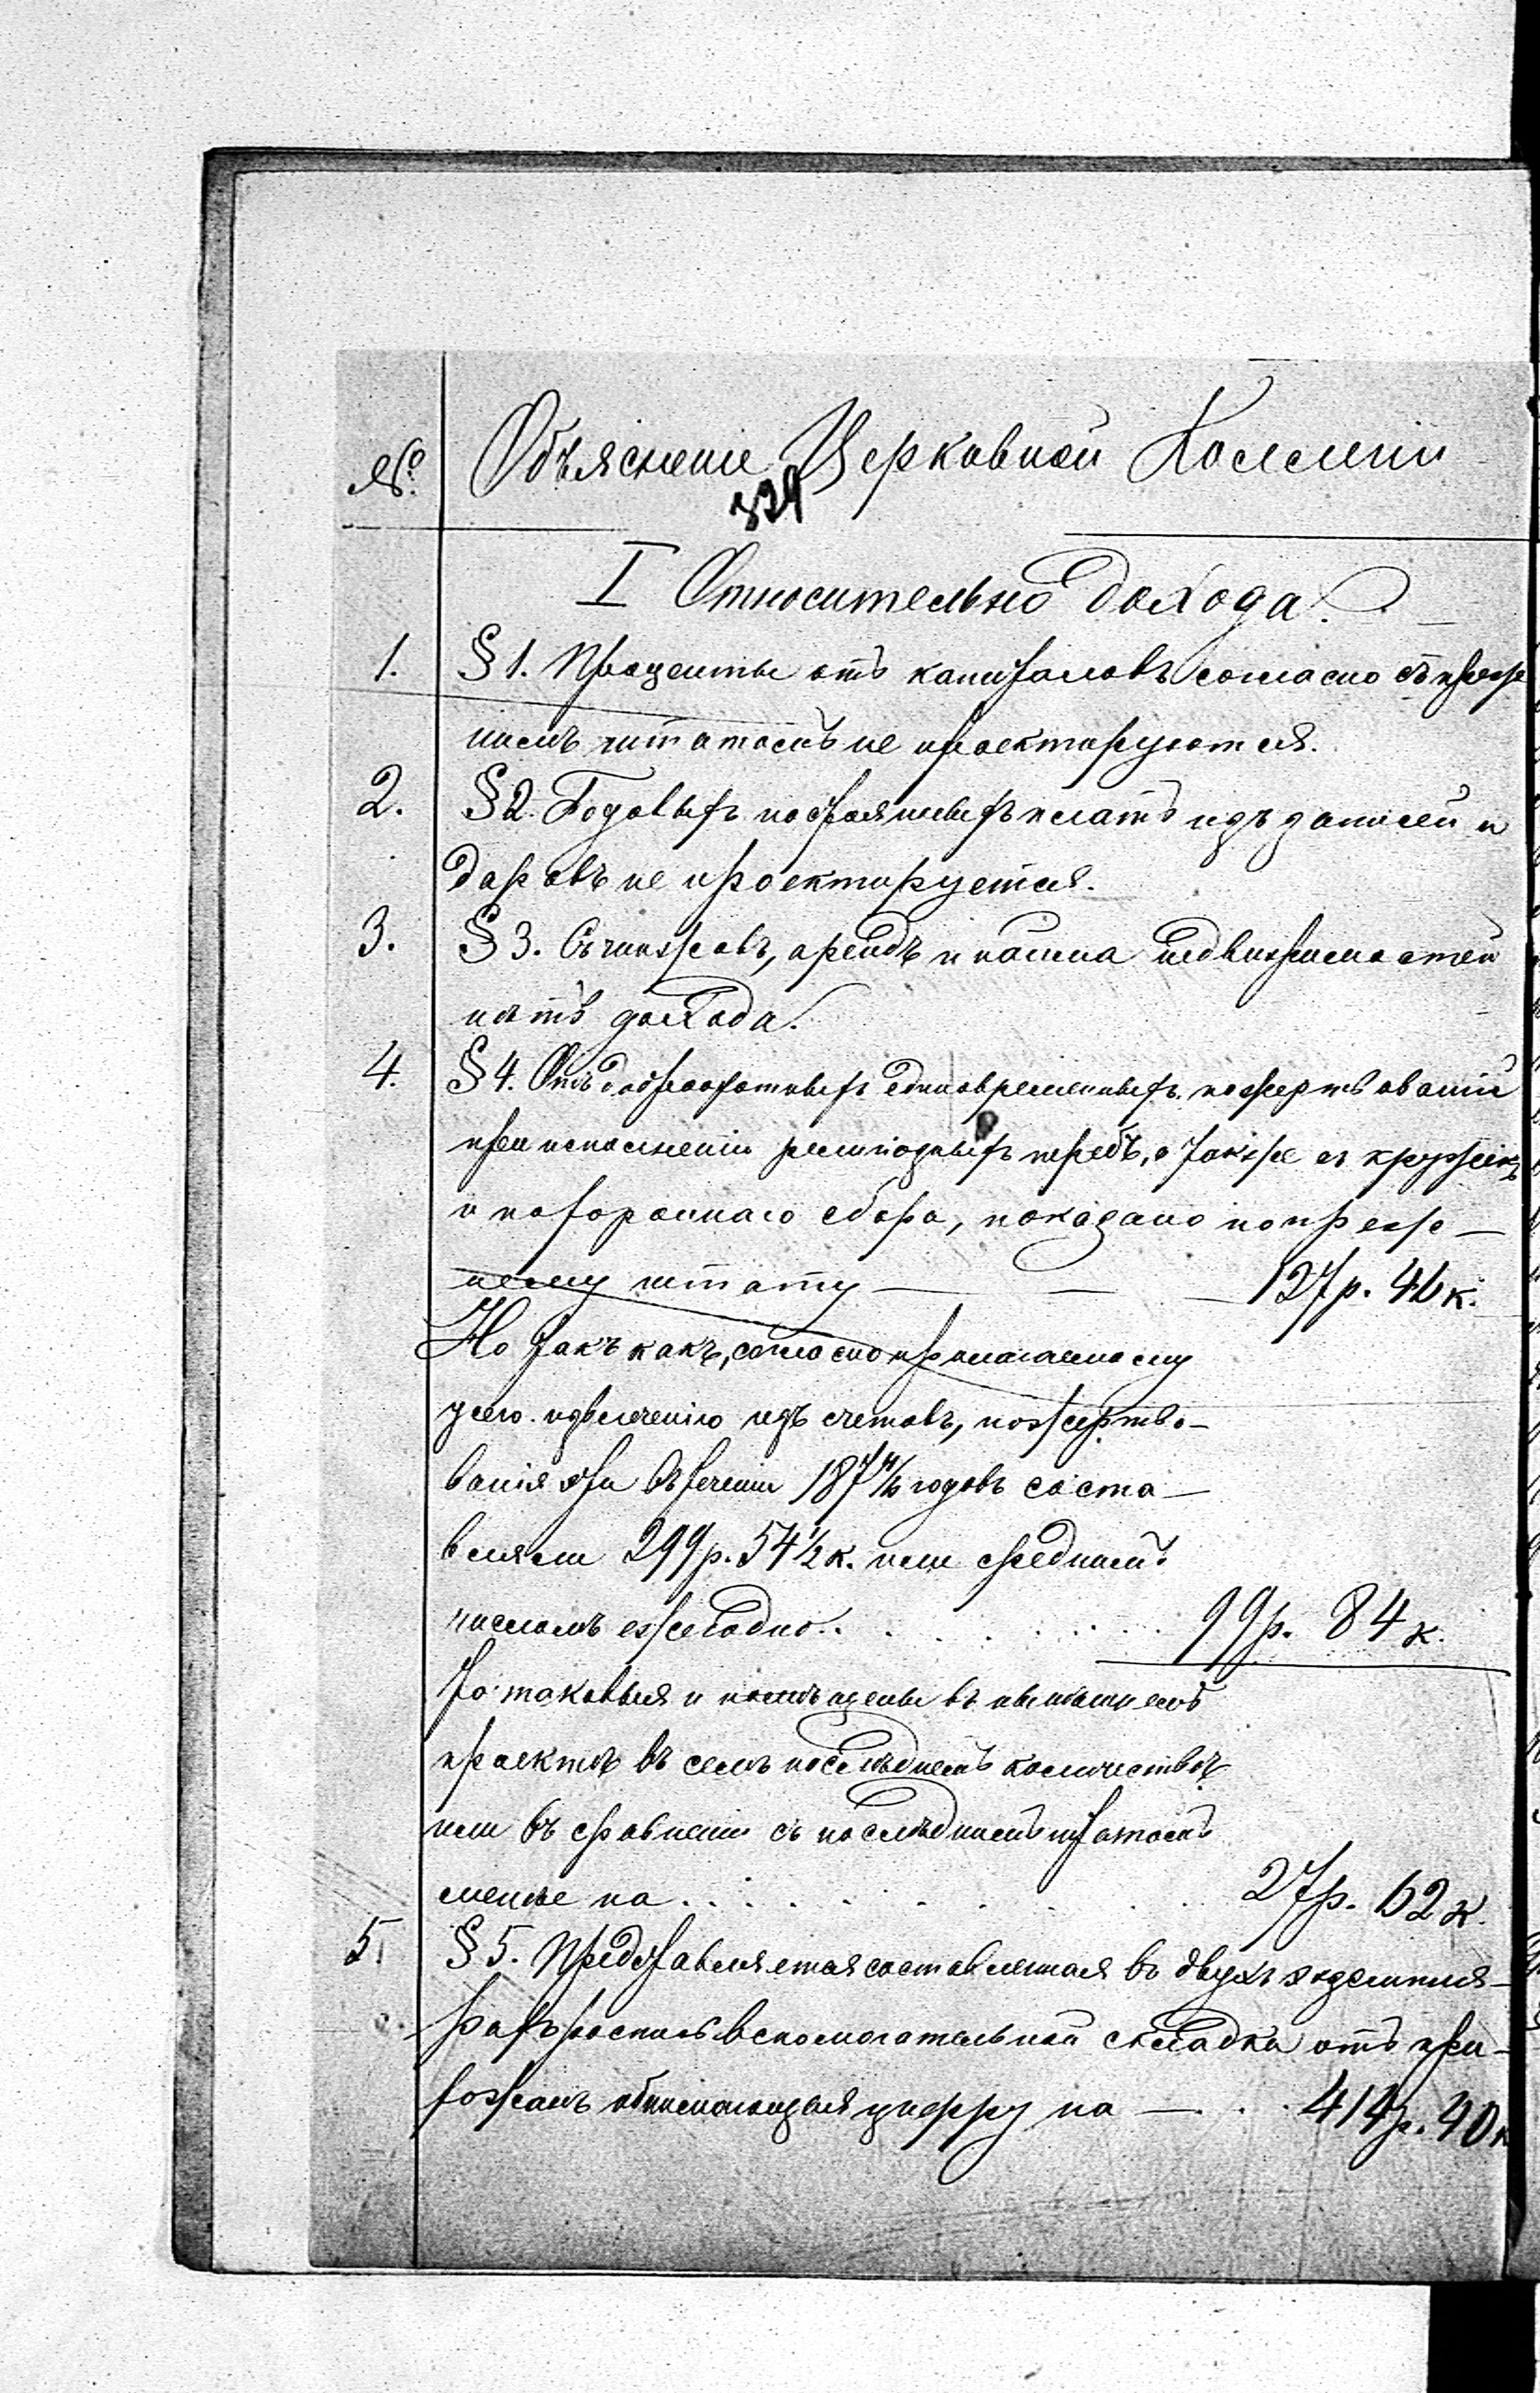 № Объясненіе Церковной Коллегіи
324
I Относительно дохода.
1. § 1. Проценты отъ капиталовъ согласно съ преж
нимъ штатомъ не проектируются.
2. § 2. Годовыхъ постоянныхъ платъ изъ записей и
даровъ не проектируется.
3. § 3. Съ чиншовъ, арендъ и найма недвижимостей
нѣтъ дохода.
4. § 4. Отъ доброхотныхъ единовременныхъ пожертвованій
при исполненіи религіозныхъ требъ, а также съ кружекъ
и сбора, показано по преж—
нему штату — — — 127р. 46к.
Но такъ какъ, согласно прилагаемому
у сего извлеченію изъ счетовъ, пожертво-
ванія эти въ теченіи 187 4/6 годовъ соста—
вляли 299р. 54½к. или среднимъ
числомъ ежегодно . . . . . . 99р. 84к.
То таковыя и помѣщены въ нынѣшнемъ
проектѣ въ семъ послѣднемъ количествѣ
или въ сравненіи съ послѣднимъ штатомъ
менѣе на . . . . . . . 27р. 62к.
5. § 5. Представляется составленная въ двухъ экземпля-
рахъ роспись вспомогательной складки отъ при-
хожанъ обнимающая цифру на — . . . 414р. 40к